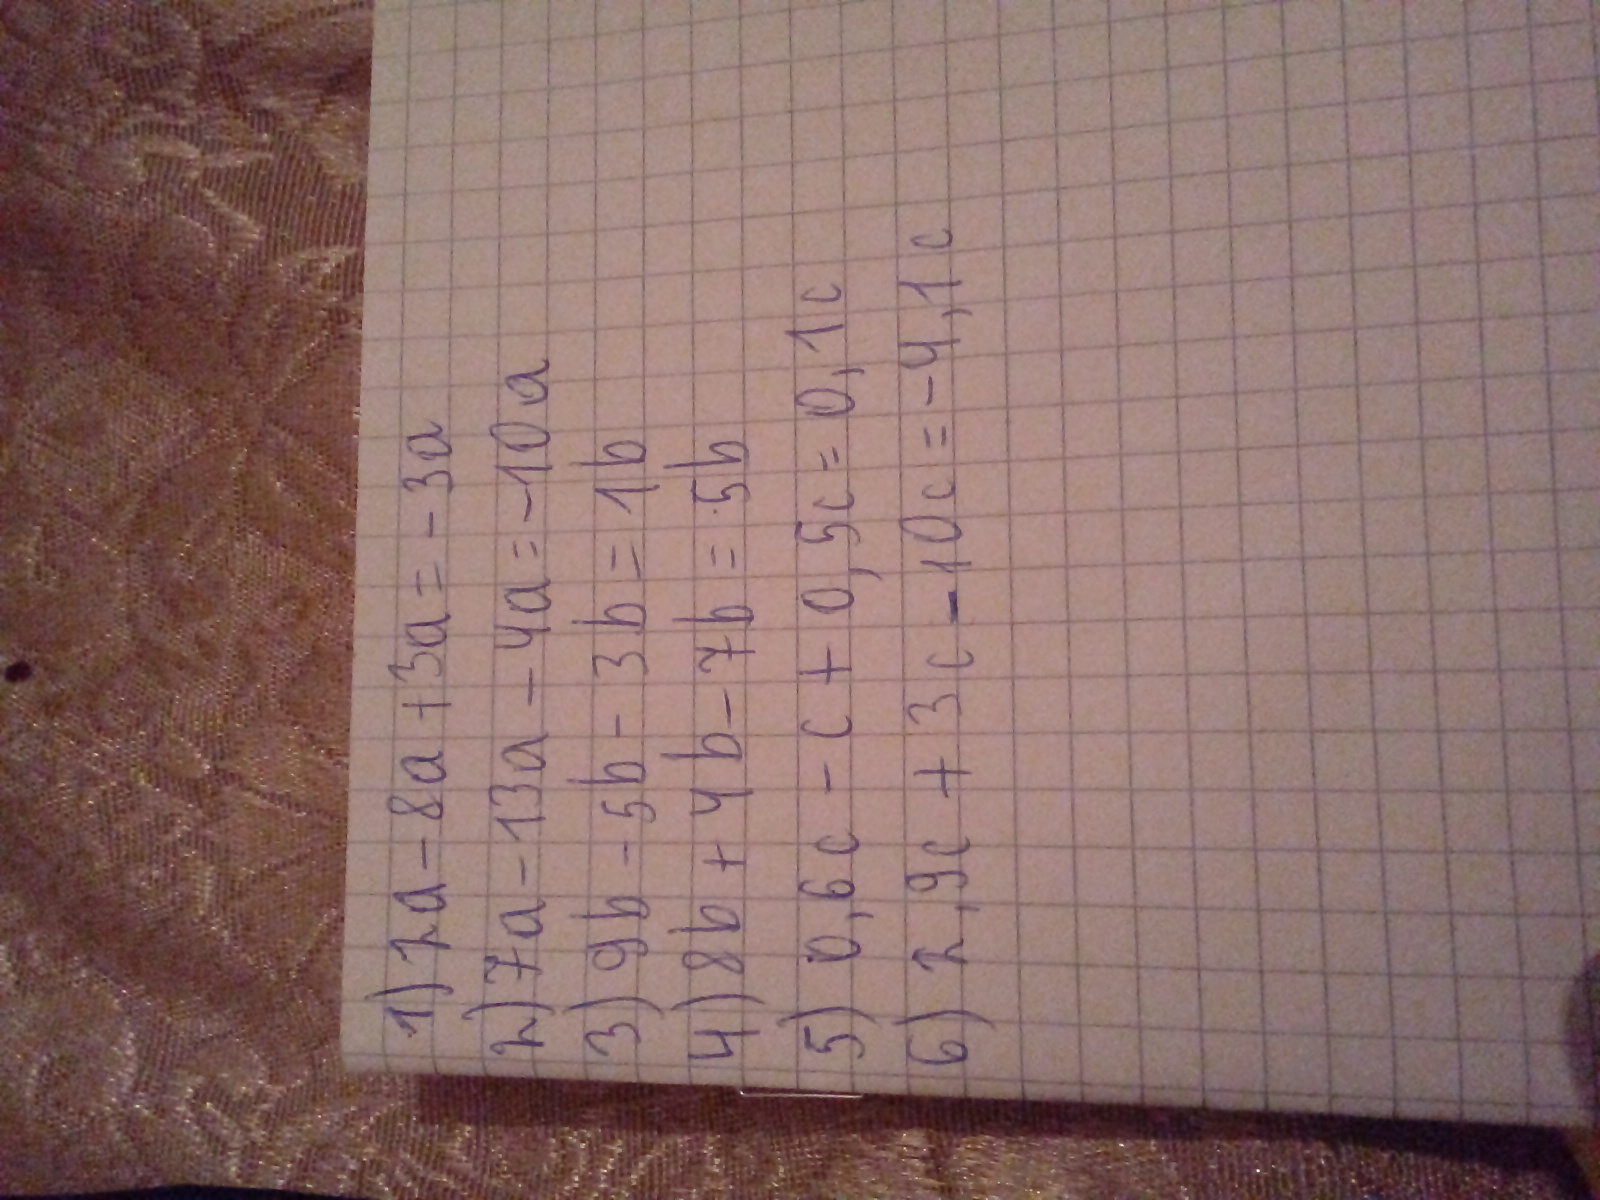 1) 2a - 8a + 3a = -3a
2) 7a - 13a - 4a = -10a
3) 9b - 5b - 3b = 1b
4) 8b + 4b - 7b = 5b
5) 0,6c - c + 0,5c = 0,1c
6) 2,9c + 3c - 10c = -4,1c